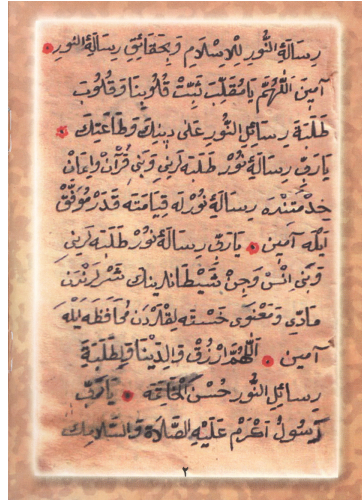 رِسَالَةَ النُّورِ لِلْاِسْلَامِ وَبِحَقَائِقِ رِسَالَةِ النُّورِ
آمِينَ اَللّٰهُمَّ يَا مُقَلِّبَ ثَبِّتْ قُلُوبَنَا وَقُلُوبَ
طَلَبَةِ رِسَائِلِ النُّورِ عَلٰى دِينِكَ وَطَاعَتِكَ
يَارَبِّ رِسَالَۀِ نُورْ طَلَبَه لَرِنِى وَبَنِى قُرْآنْ وَاِيمَانْ
خِدْمَتِنْدَه رِسَالَۀِ نُورْلَه قِيَامَتَه قَدَرْ مُوَفَّقْ
اَيْلَه آمِينَ يَارَبِّ رِسَالَۀِ نُورْ طَلَبَه لَرِنِى
وَبَنِى اِنْسْ وَجِنْ شَيْطَانْلَرِينِكْ شَرْلَرِنْدَنْ
مَادِّى وَمَعْنَوِى خَسْتَه لِقْلَرْدَنْ مُحَافَظَه اَيْلَه
آمِينَ اَللّٰهُمَّ ارْزُقْ وَالِدَيْنَا وَلِطَلَبَةِ
رَسَائِلِ النُّورِ حُسْنَ الْخَاتِمَةِ يَارَبِّ
رَسُولُ اَكْرَمْ عَلَيْهِ الصَّلَاةُ وَالسَّلَامِكْ
٢